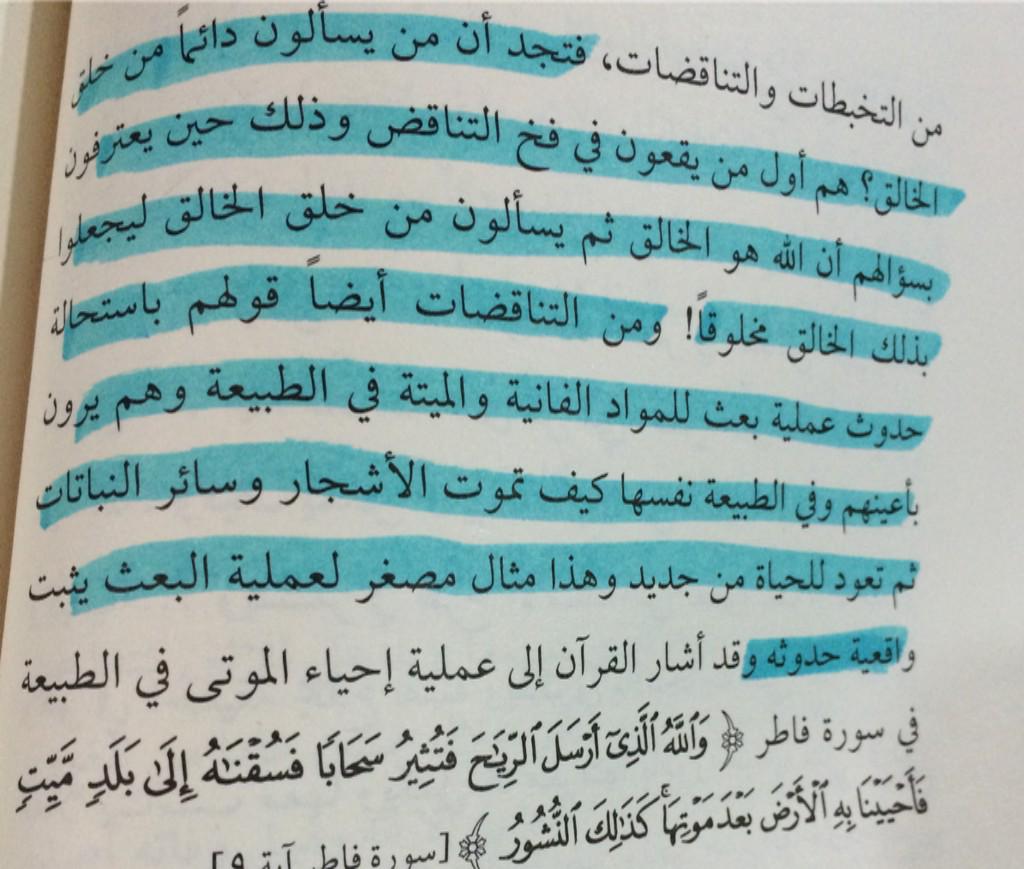 من التخبطات والتناقضات، فتجد أن من يسألون دائماً من خلق
الخالق؟ هم أول من يقعون في فخ التناقض وذلك حين يعترفون
بسؤالهم أن الله هو الخالق ثم يسألون من خلق الخالق ليجعلوا
بذلك الخالق مخلوقاً! ومن التناقضات أيضاً قولهم باستحالة
حدوث عملية بعث للمواد الفانية والميتة في الطبيعة وهم يرون
بأعينهم وفي الطبيعة نفسها كيف تموت الأشجار وسائر النباتات
ثم تعود للحياة من جديد وهذا مثال مصغر لعملية البعث يثبت
واقعية حدوثه وقد أشار القرآن إلى عملية إحياء الموتى في الطبيعة
في سورة فاطر ﴿ وَٱللَّهُ ٱلَّذِىٓ أَرْسَلَ ٱلرِّيَٰحَ فَتُثِيرُ سَحَابًا فَسُقْنَٰهُ إِلَىٰ بَلَدٍ مَّيِّتٍ
فَأَحْيَيْنَا بِهِ ٱلْأَرْضَ بَعْدَ مَوْتِهَا ۚ كَذَٰلِكَ ٱلنُّشُورُ ﴾ [سورة فاطر آية ٩]